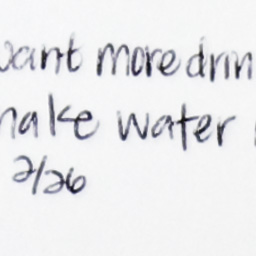 want more drin
make water
2/26